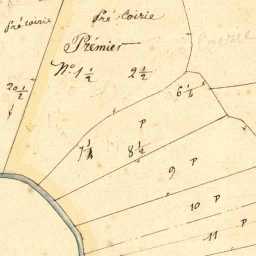 Pré coirie
Pré Coirie
Prémier
N° 1 1/2 2 1/2
20 1/2
6 1/2
P
7 1/2 8 1/4
9 P
10 P
11 P